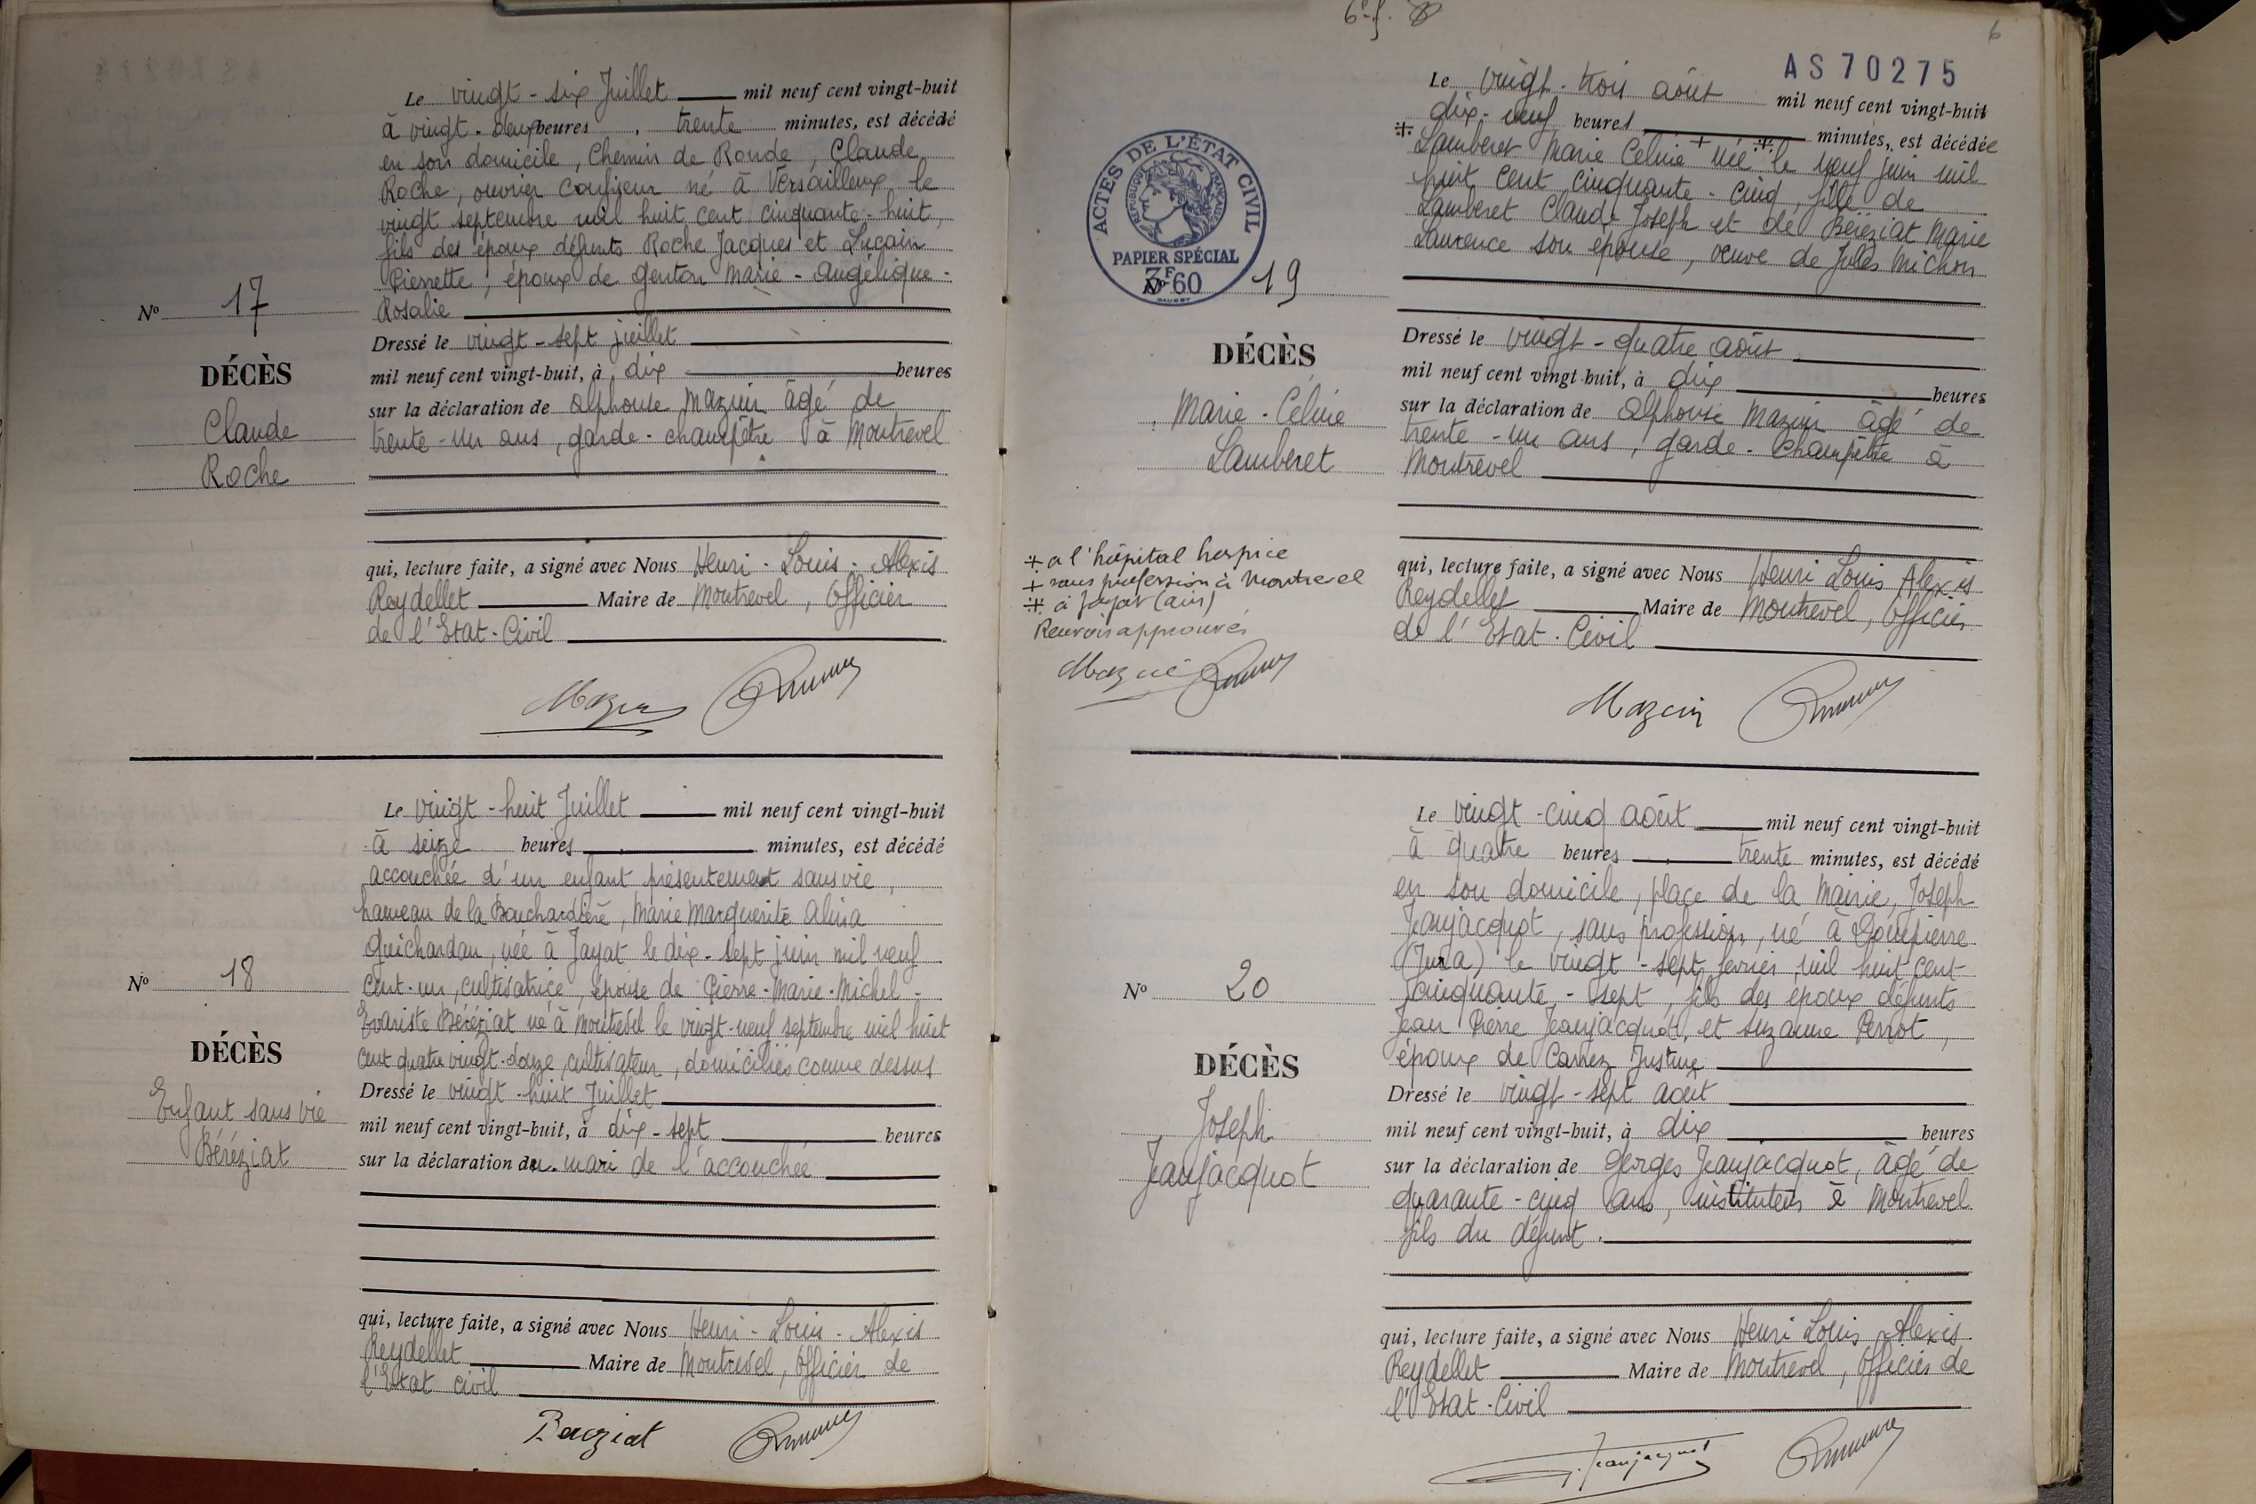 Le vingt-six Juillet mil neuf cent vingt-huit
à vingt-deux heures, trente minutes, est décédé
en son domicile, Chemin de Ronde, Claude
Roche, ouvrier confiseur né à Versailleux le
vingt septembre mil huit cent cinquante-huit,
fils des époux défunts Roche Jacques et Luçain
Pierrette, époux de Genton Marie-Angélique-
Rosalie
Nº 17
DÉCÈS
Claude
Roche
Dressé le vingt-sept juillet
mil neuf cent vingt-huit, à dix heures
sur la déclaration de Alphonse Mazuir âgé de
trente-un ans, garde-champêtre à Montrevel
qui, lecture faite, a signé avec Nous Henri-Louis-Alexis
Reydellet Maire de Montrevel, Officier
de l'Etat-Civil
Mazuir
Le vingt-huit Juillet mil neuf cent vingt-huit
à seize heures minutes, est décédé
accouchée d'un enfant présentement sans vie,
hameau de la Bouchardière, Marie Marguerite Alina
Guichardan, née à Jayat le dix-sept juin mil neuf
cent-un, cultivatrice, épouse de Pierre-Marie-Michel-
Evariste Béréziat né à Montrevel le vingt-neuf septembre mil huit
cent quatre vingt-douze, cultivateur, domiciliés comme dessus
Nº 18
DÉCÈS
Enfant sans vie
Béréziat
Dressé le vingt-huit Juillet
mil neuf cent vingt-huit, à dix-sept heures
sur la déclaration du mari de l'accouchée
qui, lecture faite, a signé avec Nous Henri-Louis-Alexis
Reydellet Maire de Montrevel, Officier de
l'Etat civil
Bereziat
6
AS70275
Le vingt-trois août mil neuf cent vingt-huit
dix-neuf heures minutes, est décédée
⁜ Lamberet Marie Celine + née ⁜ le neuf juin mil
huit cent cinquante-cinq, fille de
Lamberet Claude Joseph et de Béréziat Marie
Laurence son épouse, veuve de Jules Michon
ACTES DE L'ÉTAT CIVIL
RÉPUBLIQUE FRANÇAISE
PAPIER SPÉCIAL
3F60
Nº 19
DÉCÈS
Marie-Céline
Lamberet
Dressé le vingt-quatre août
mil neuf cent vingt-huit, à dix heures
sur la déclaration de Alphonse Mazuir âgé de
trente-un ans, garde-Champêtre à
Montrevel
⁜ a l'hôpital hospice
+ sans profession à Montrevel
⁜ à Jayat (ain)
Renvois approuvés
Mazuir
qui, lecture faite, a signé avec Nous Henri Louis Alexis
Reydellet Maire de Montrevel, Officier
de l'Etat-Civil
Mazuir
Le vingt-cinq août mil neuf cent vingt-huit
à quatre heures, trente minutes, est décédé
en son domicile, place de la Mairie, Joseph
Jeanjacquot, sans profession, né à Dompierre
(Jura) le vingt-sept février mil huit cent
cinquante-sept, fils des époux défunts
Jean Pierre Jeanjacquot, et Suzanne Perrot,
époux de Carrez Justine
Nº 20
DÉCÈS
Joseph
Jeanjacquot
Dressé le vingt-sept août
mil neuf cent vingt-huit, à dix heures
sur la déclaration de Georges Jeanjacquot, âgé de
quarante-cinq ans, instituteur à Montrevel
fils du défunt.
qui, lecture faite, a signé avec Nous Henri Louis Alexis
Reydellet Maire de Montrevel, Officier de
l'Etat-Civil
G. Jeanjacquot